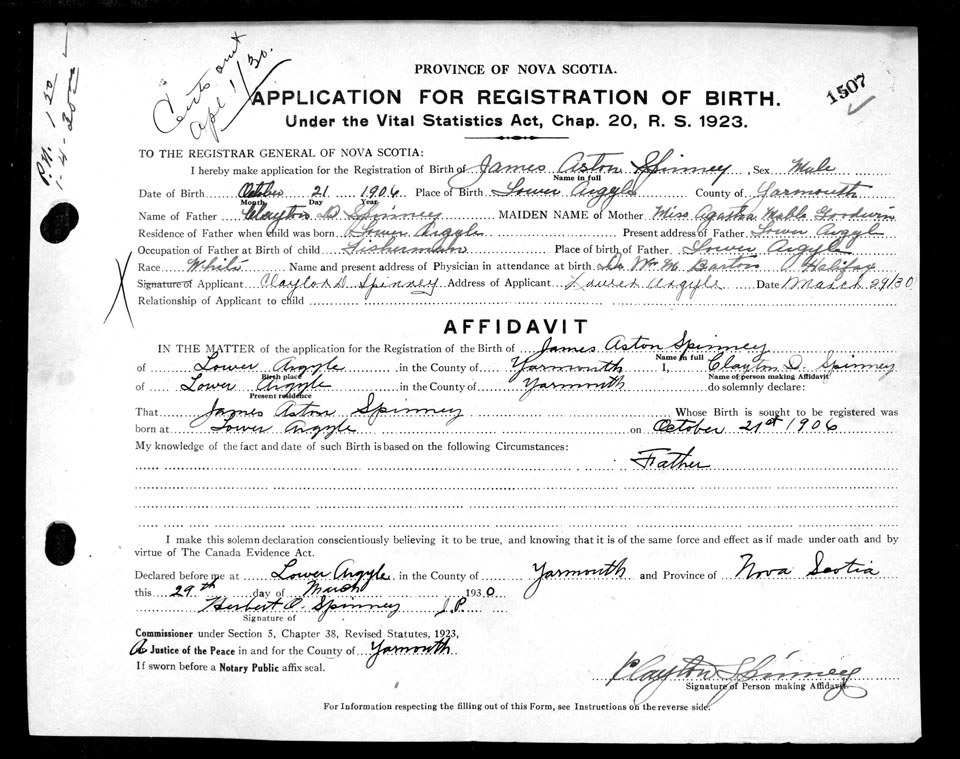 Certs out
Apl 1/30.
P.N. 1 50
1-4-30
PROVINCE OF NOVA SCOTIA.
1507
APPLICATION FOR REGISTRATION OF BIRTH.
Under the Vital Statistics Act, Chap. 20, R. S. 1923.
TO THE REGISTRAR GENERAL OF NOVA SCOTIA:
I hereby make application for the Registration of Birth of James Aston Spinney Sex Male
Name in full
Date of Birth October 21 1906 Place of Birth Lower Argyle County of Yarmouth
Month Day Year
Name of Father Clayton D Spinney MAIDEN NAME of Mother Miss Agatha Mable Goodwin
Residence of Father when child was born Lower Argyle Present address of Father Lower Argyl
Occupation of Father at Birth of child Fisherman Place of birth of Father Lower Argyle
Race White Name and present address of Physician in attendance at birth Dr Wm M Barton Halifax
X
Signature of Applicant Clayton D. Spinney Address of Applicant Lower Argyle Date March 29/30
Relationship of Applicant to child
AFFIDAVIT
IN THE MATTER of the application for the Registration of the Birth of James Aston Spinney
Name in full
of Lower Argyle in the County of Yarmouth I, Clayton D. Spinney
Birth place Name of person making Affidavit
of Lower Argyle in the County of Yarmouth do solemnly declare:
Present residence
That James Aston Spinney Whose Birth is sought to be registered was
born at Lower Argyle on October 21st 1906
My knowledge of the fact and date of such Birth is based on the following Circumstances:
Father
I make this solemn declaration conscientiously believing it to be true, and knowing that it is of the same force and effect as if made under oath and by
virtue of The Canada Evidence Act.
Declared before me at Lower Argyle in the County of Yarmouth and Province of Nova Scotia
this 29th day of March 1930
Herbert O. Spinney J.P.
Signature of
Commissioner under Section 5, Chapter 38, Revised Statutes, 1923,
A Justice of the Peace in and for the County of Yarmouth
If sworn before a Notary Public affix seal.
Clayton Spinney
Signature of Person making Affidavit.
For Information respecting the filling out of this Form, see Instructions on the reverse side.